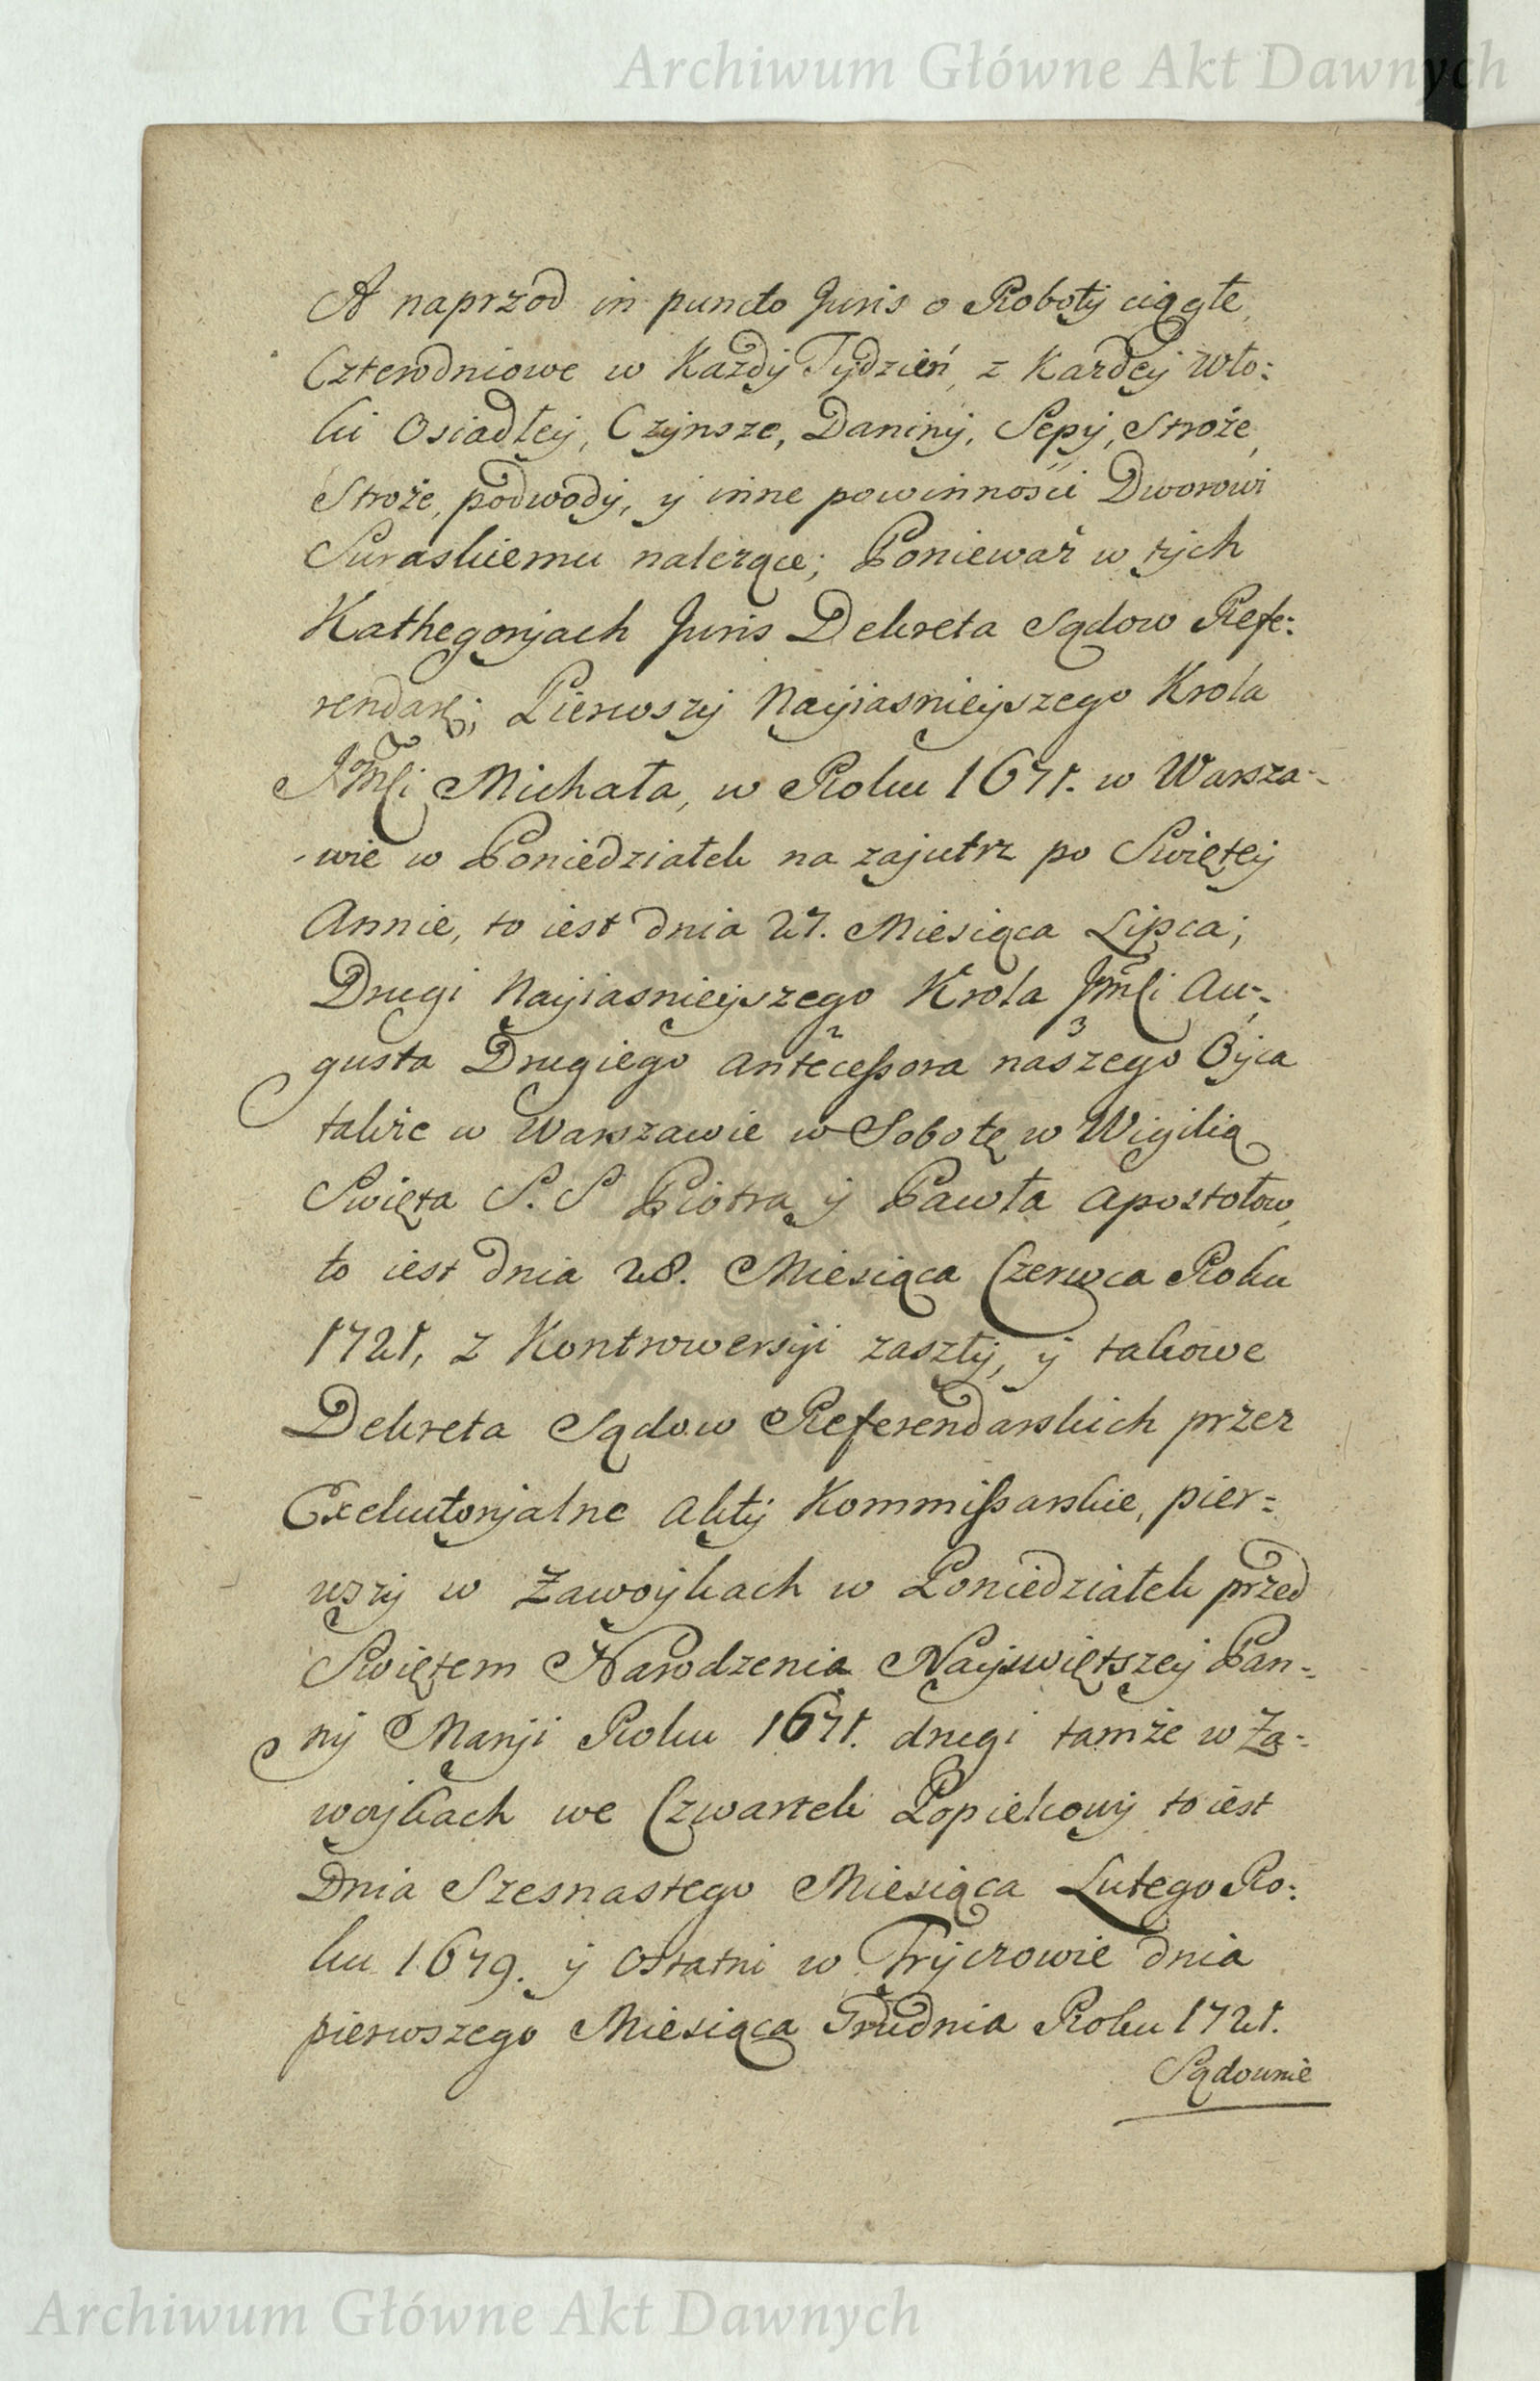 Archiwum Główne Akt Dawnych
A naprzod in puncto Juris o Roboty ciągłe,
Czterodniowe w Każdy Tydzień, z Kardey Wło:
ki Osiadłey, Czynsze, Daniny, Sepy, Stroże,
Stroże, podwody, y inne powinności Dworowi
Suraskiemu należące; Ponieważ w tych
Kathegoryach Juris Dekreta Sądow Refe:
rendar:; Pierwszy Nayiasnieyszego Krola
JMści Michała, w Roku 1671. w Warsza-
-wie w Poniedziałek na zajutrz po Swiętey
Annie, to iest dnia 27. Miesiąca Lipca;
Drugi Nayiasnieyszego Krola Jmści Au-
gusta Drugiego Antecessora naszego Oyca
także w Warszawie w Sobotę w Wigilią
Swięta S. S Piotra y Pawła Apostołow,
to iest dnia 28. Miesiąca Czerwca Roku
1721, z Kontrowersyi zaszły, y takowe
Dekreta Sądow Referendarskich przez
Exekutoryalne Akty Kommissarskie, pier=
wszy w Zawoykach w Poniedziałek przed
Swiętem Narodzenia Nayswiętszey Pan-
ny Maryi Roku 1671. drugi tamże w Za-
woykach we Czwartek Popielcowy to iest
Dnia Szesnastego Miesiąca Lutego Ro:
ku 1679. y Ostatni w Tryczowie dnia
pierwszego Miesiąca Grudnia Roku 1721.
Sądownie
Archiwum Główne Akt Dawnych